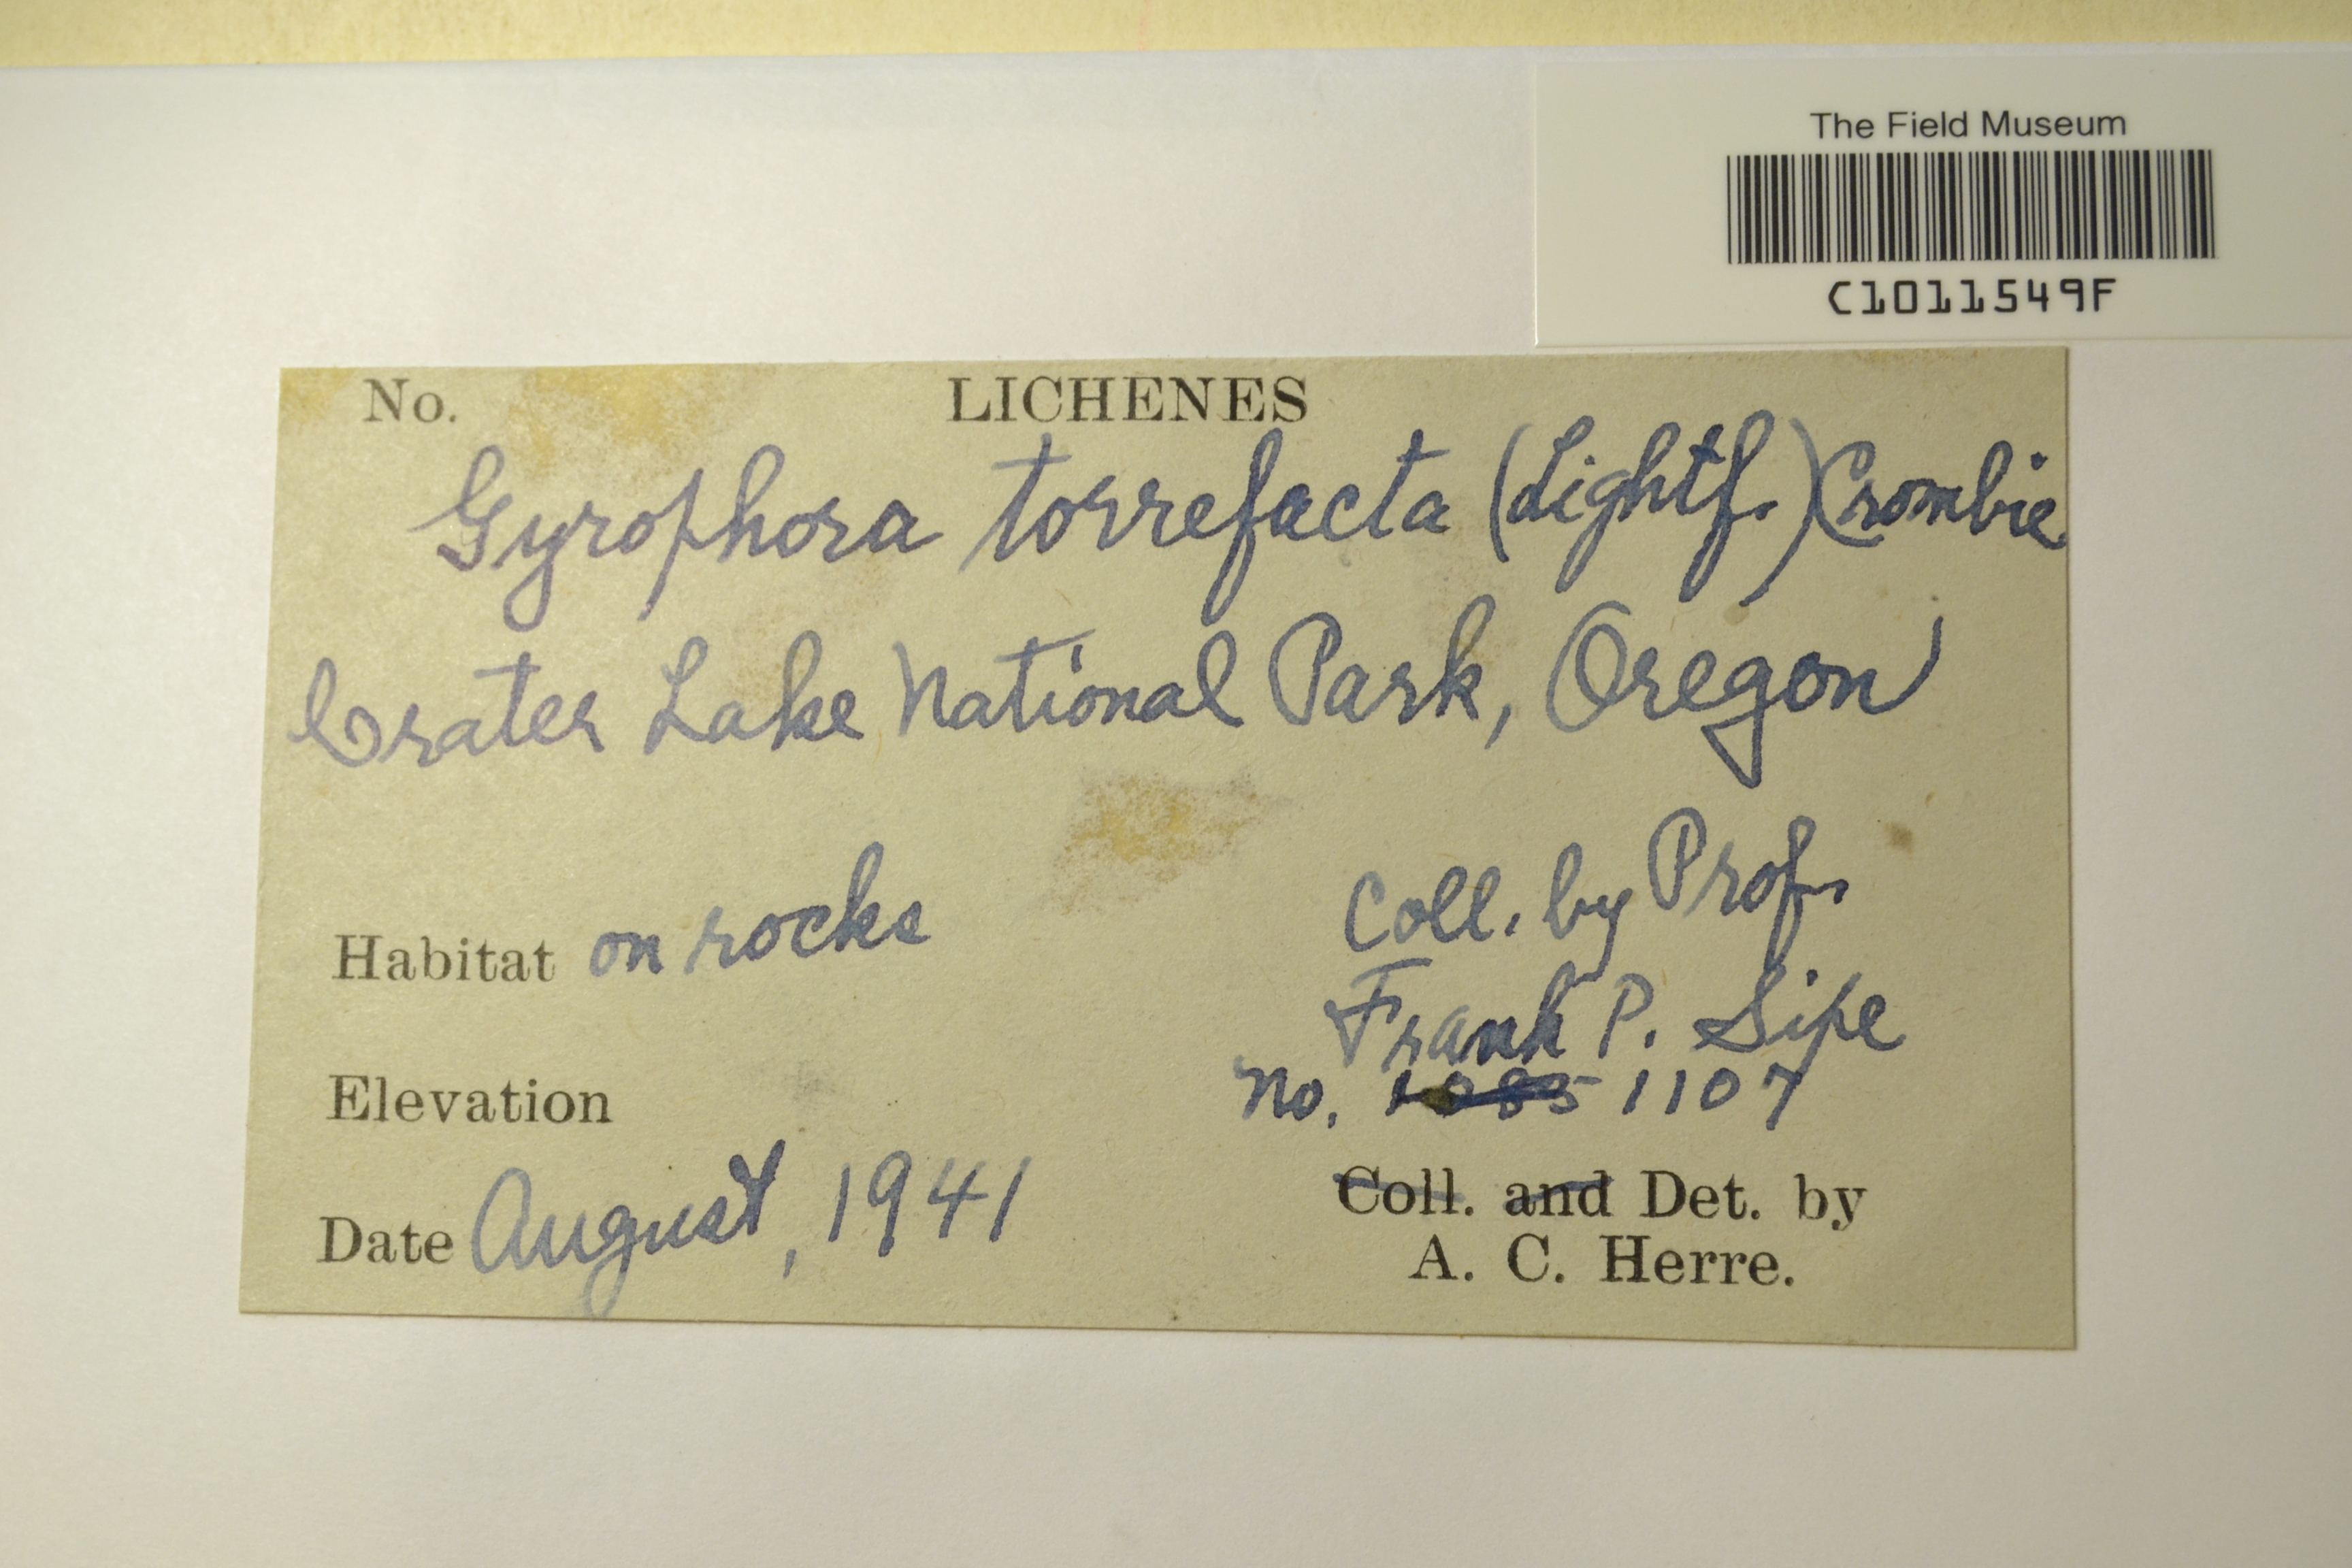 The Field Museum
C1011549F
No. LICHENES
Gyrophora torrefacta (Lightf.) Crombie
Crater Lake National Park, Oregon
Coll. by Prof.
Habitat on rocks
Frank P. Sipe
No. 1085 1107
Elevation
Coll. and Det. by
Date August, 1941
A. C. Herre.